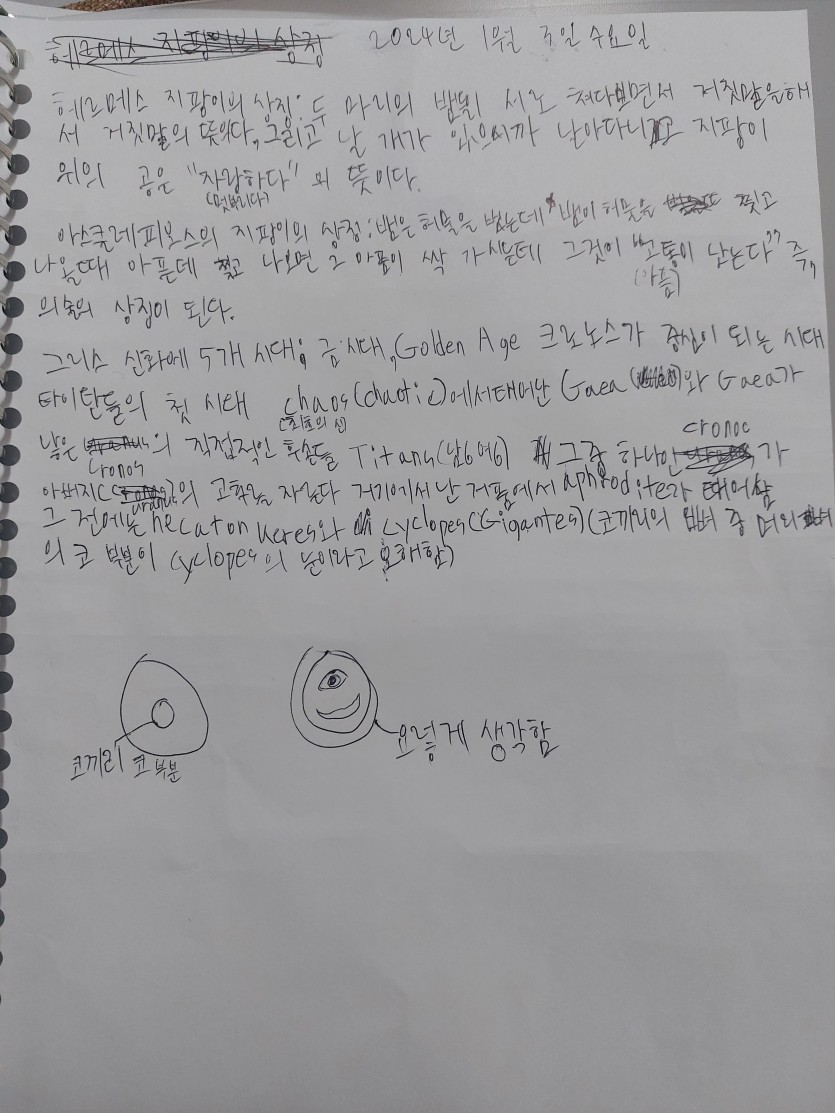 헤르메스 지팡이의 상징 2024년 1월 3일 수요일
헤르메스 지팡이의 상징: 두 마리의 뱀이 서로 쳐다보면서 거짓말을해
서 거짓말의 뜻이다, 그리고 날 개가 있으니까 날아다니고 지팡이
위의 공은 "자랑하다" 의 뜻이다.
(뽐내다)
아스클레피오스의 지팡이의 상징: 뱀은 허물을 벗는데 뱀이 허물을 찢고
나올때 아픈데 찢고 나오면 그 아픔이 싹 가시는데 그것이 "고통이 낫는다" 즉,
(아픔)
의술의 상징이 된다.
그리스 신화에 5개 시대: 금 시대, Golden Age 크로노스가 중심이 되는 시대
타이탄들의 첫 시대 chaos(chaotic)에서태어난 Gaea 와 Gaea가
(최초의 신)
낳은 의 직접적인 후손들 Titans(남6 여6) 그중 하나인 cronoc 가
cronos
아버지 uranus의 고학을 자른다 거기에서 난 거품에서 aphrodite가 태어남
그 전에는 hecaton keres와 cyclopes(Gigantes)(코끼리의 뼈 중 머리
의 코 부분이 cyclopes의 눈이라고 오해함)
코끼리 코 부분
요렇게 생각함